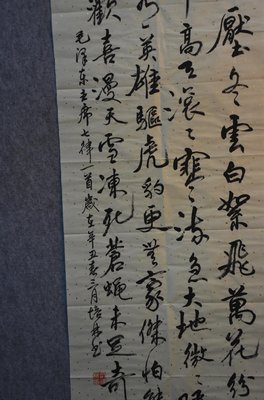 壓冬雲白絮飛萬花紛
高天滚〻寒流急大地微〻暖
有英雄驅虎豹更無豪傑怕熊
歡喜漫天雪凍死蒼蠅未足奇
毛澤東主席七律一首歲在辛丑春三月培